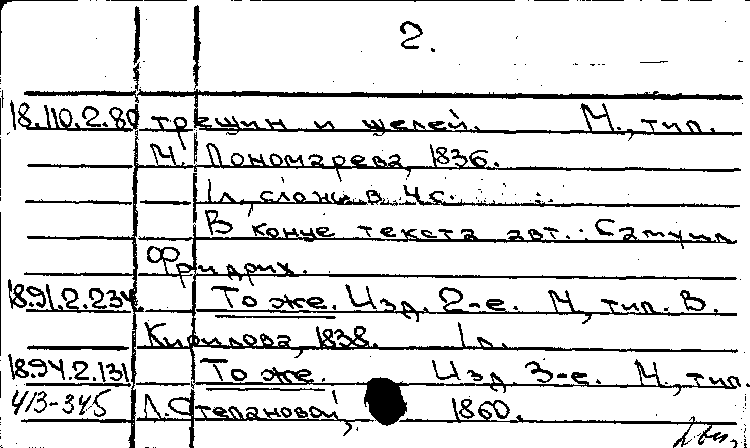 2.
18.110.2.80 трещин и щелей. М., тип.
М. Пономарева, 1836.
1л., сложн в 4с.
В конце текста авт.: Самуил
Фридрих.
18.91.2.234. То же. Изд. 2-е. М., тип. В.
Кирилова, 1838. 1л.
18.94.2.131 То же. Изд. 3-е. М., тип.
413-345 Л. Степановой, 1860.